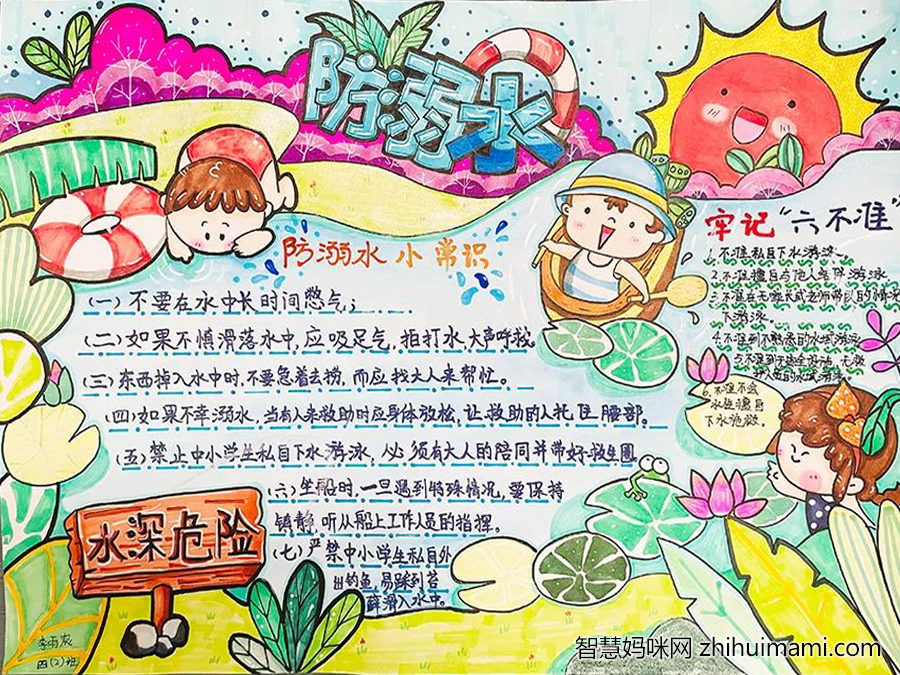 防溺水
防溺水小常识
(一)不要在水中长时间憋气;
(二)如果不慎滑落水中,应吸足气,拍打水,大声呼救。
(三)东西掉入水中时,不要急着去捞,而应找大人来帮忙。
(四)如果不幸溺水,当有人来救助时应身体放松,让救助的人托住腰部。
(五)禁止中小学生私自下水游泳,必须有大人的陪同并带好救生圈
(六)坐船时,一旦遇到特殊情况,要保持
镇静,听从船上工作人员的指挥。
(七)严禁中小学生私自外
出钓鱼,易踩到苔
藓滑入水中。
牢记"六不准"
1.不准私自下水游泳
2.不准擅自与他人结伴游泳
3.不准在无家长或老师带队的情况
下游泳
4.不准到不熟悉的水域游泳
5.不准到无安全设施、无救
护人员的水域游泳
6.不准不会
水性擅自
下水施救。
水深危险
四(2)班
智慧妈咪网 zhihuimami.com